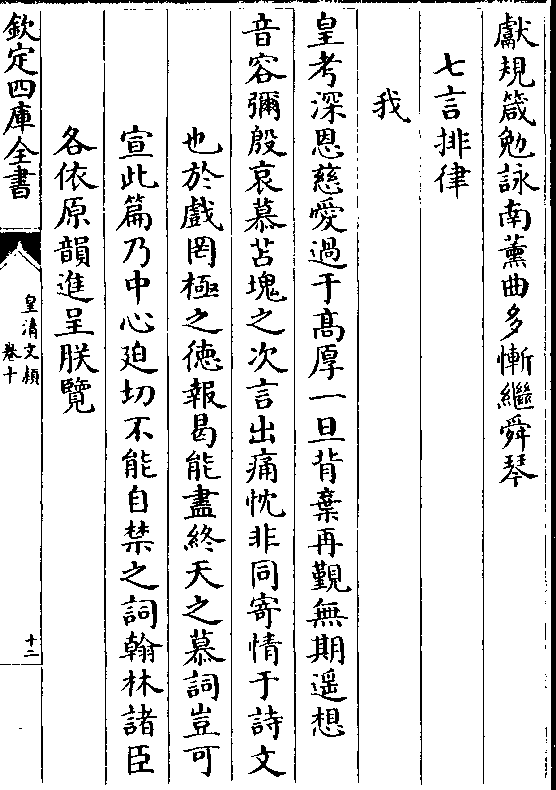 獻規箴勉詠南薰曲多慚繼舜琴
七言排律
我
皇考深恩慈愛過于髙厚一旦背棄再觐無期遥想
音容彌殷哀慕苫塊之次言出痛忱非同寄情于詩文
也於戲罔極之德報曷能盡終天之慕詞豈可
宣此篇乃中心廹切不能自禁之詞翰林諸臣
各依原韻進呈朕覽
欽定四庫全書
皇清文頴
卷十
十二